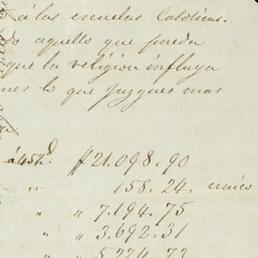 á las escuelas Católicas.
aquello que pueda
que la religion influya
lo que juzgues mas
á 45½ d ₶21.098.90
" " 158.24. unico
" " 7.194.75
" " 3.692.31
" " 5.274.73